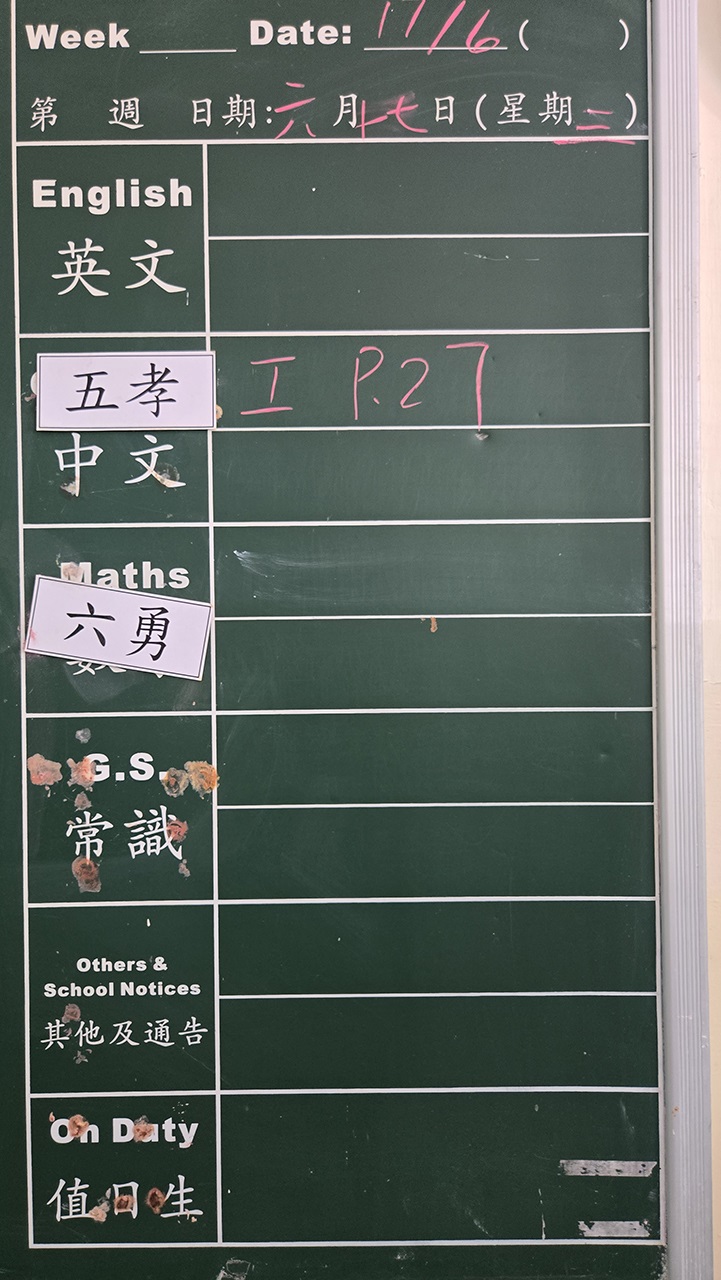 Week ____ Date: 17/6 ( )
第 週 日期:六月十七日(星期二)
English
英文
五孝 I P.27
中文
Maths
六勇
G.S.
常識
Others &
School Notices
其他及通告
On Duty
值日生